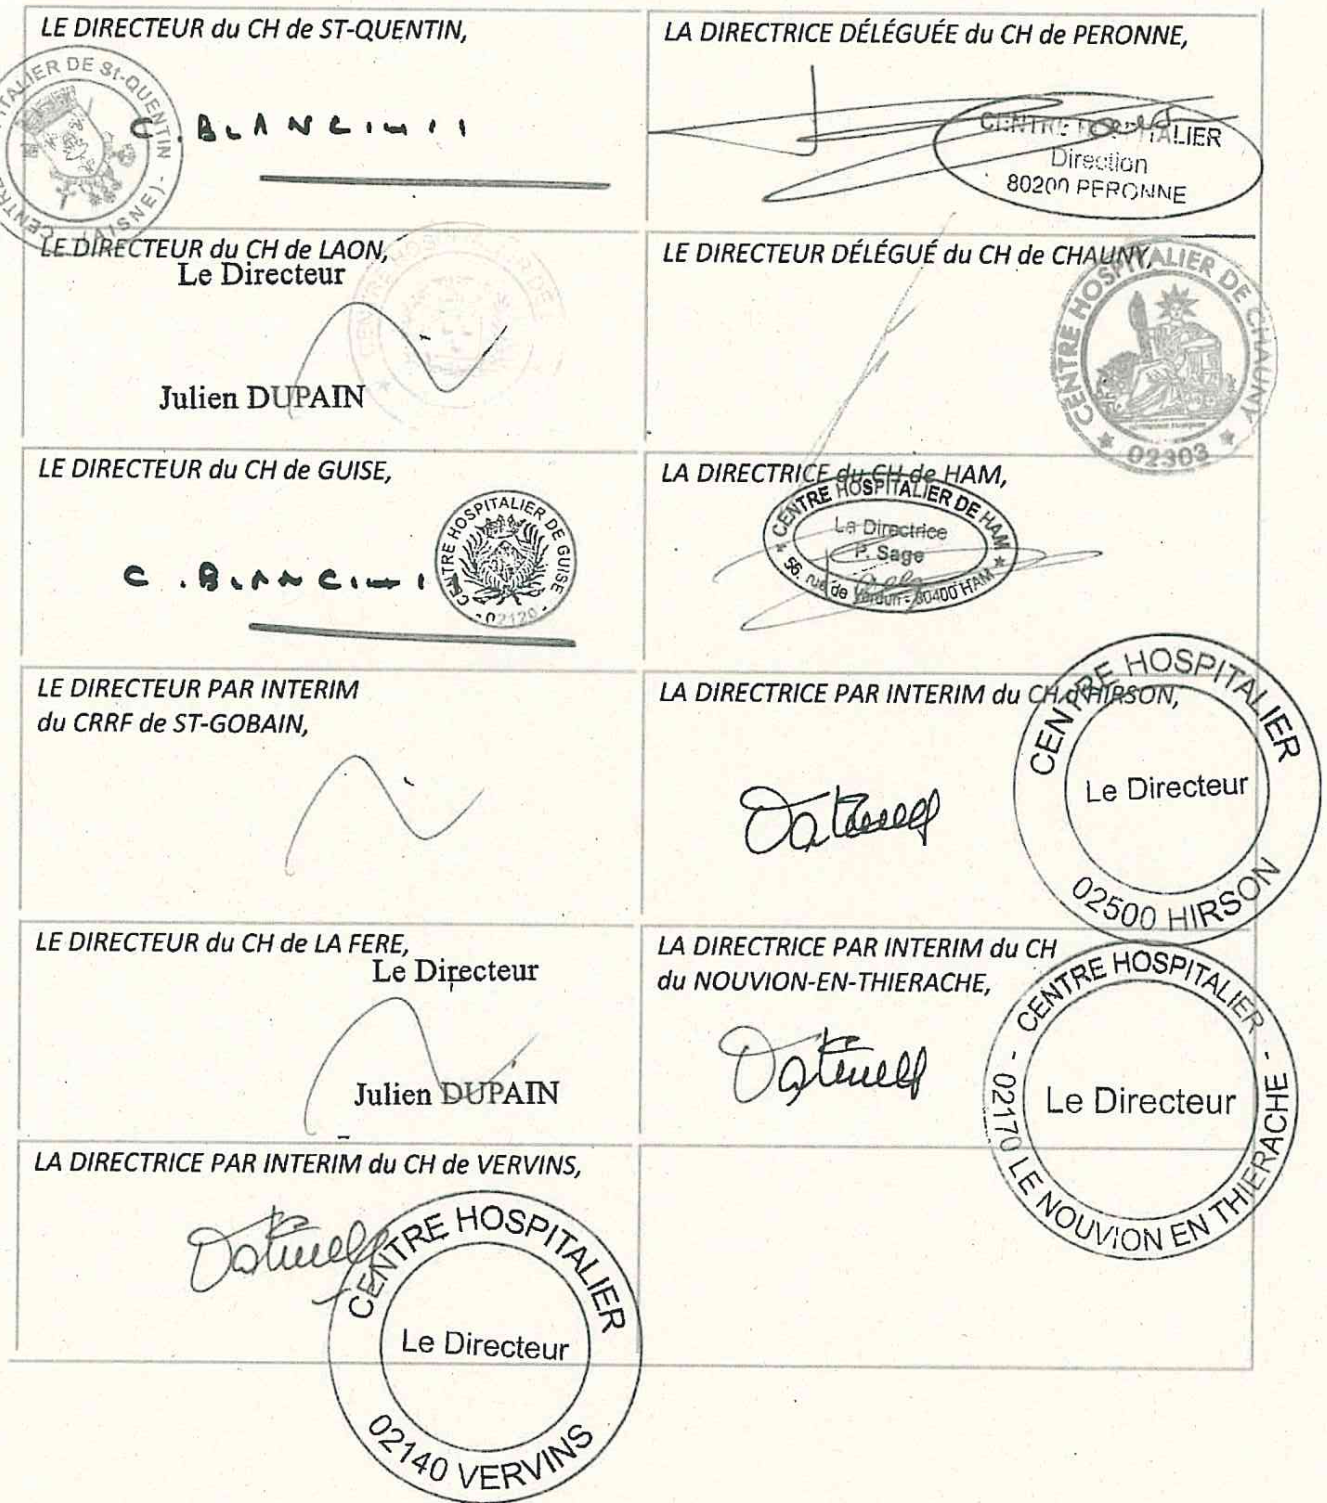 LE DIRECTEUR du CH de ST-QUENTIN,
CENTRE HOSPITALIER DE St-QUENTIN - (AISNE)
LA DIRECTRICE DÉLÉGUÉE du CH de PERONNE,
CENTRE HOSPITALIER
Direction
80200 PERONNE
LE DIRECTEUR du CH de LAON,
Le Directeur
Julien DUPAIN
LE DIRECTEUR DÉLÉGUÉ du CH de CHAUNY,
CENTRE HOSPITALIER DE CHAUNY
02303
LE DIRECTEUR du CH de GUISE,
CENTRE HOSPITALIER DE GUISE
- 02120 -
LA DIRECTRICE du CH de HAM,
CENTRE HOSPITALIER DE HAM
La Directrice
P. Sage
56, rue de Verdun - 80400 HAM
LE DIRECTEUR PAR INTERIM
du CRRF de ST-GOBAIN,
LA DIRECTRICE PAR INTERIM du CH d'HIRSON,
CENTRE HOSPITALIER
Le Directeur
02500 HIRSON
LE DIRECTEUR du CH de LA FERE,
Le Directeur
Julien DUPAIN
LA DIRECTRICE PAR INTERIM du CH
du NOUVION-EN-THIERACHE,
- CENTRE HOSPITALIER -
Le Directeur
02170 LE NOUVION EN THIERACHE
LA DIRECTRICE PAR INTERIM du CH de VERVINS,
CENTRE HOSPITALIER
Le Directeur
02140 VERVINS